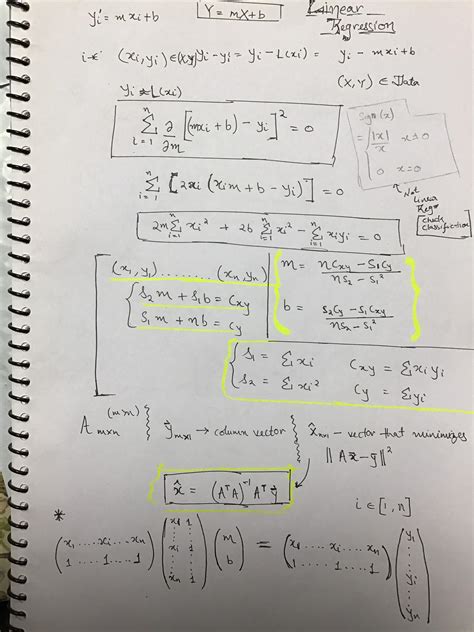 yi' = mxi + b   Y = mX+b   Linear Regression
i.e. (xi, yi) ∈ (X,Y) yi - yi = yi - L(xi) = yi - mxi + b
(X, Y) ∈ Data
n Σ i=1 ∂/∂m [(mxi + b) - yi]² = 0
Sign(x) = { |x|/x x≠0
0 x=0
n Σ i=1 [2xi (xim + b - yi)] = 0
Not linear Regn
check classification
2m n Σ i=1 xi² + 2b n Σ i=1 xi² - n Σ i=1 xiyi = 0
(x1, y1) ........ (xn, yn)
{ S2 m + S1 b = Cxy
S1 m + nb = Cy
m = (nCxy - S1Cy) / (nS2 - S1²)
b = (S2Cy - S1Cxy) / (nS2 - S1²)
{ S1 = Σxi   Cxy = Σxi yi
S2 = Σxi²   Cy = Σyi
A mxn   ŷ mx1 → column vector   x̂ nx1 - vector that minimizes
|| Ax - y ||²
x̂ = (AᵀA)⁻¹ Aᵀ y
i ∈ [1, n]
*
(x1 ... xi ... xn / 1 ... 1 ... 1) (x1 1 / : : / xi 1 / : : / xn 1) (m / b) = (x1 ... xi ... xn / 1 ... 1 ... 1) (y1 / : / yi / : / yn)